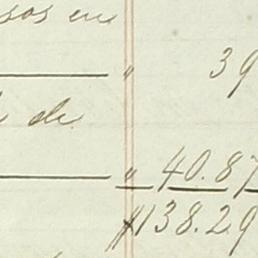 sos en
" 39
de
" 40.87
$138.29